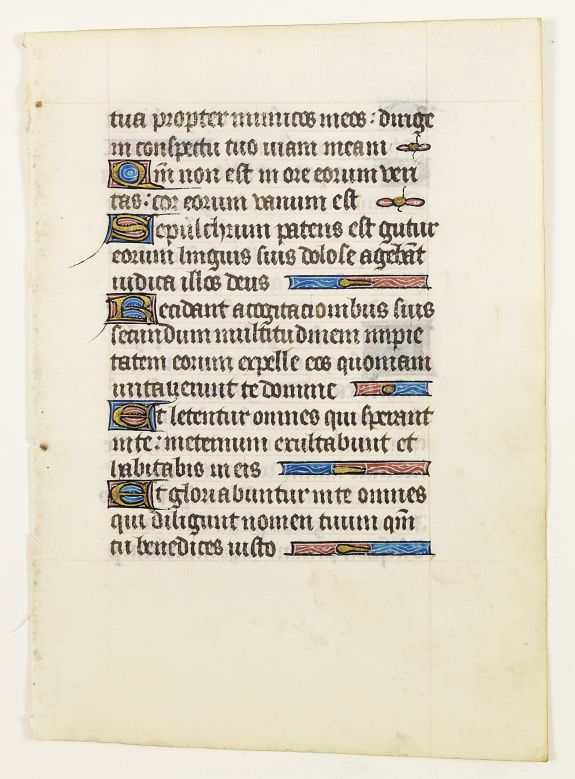 tua propter inimicos meos: dirige
in conspectu tuo uiam meam
Qm̄ non est in ore eorum veri
tas: cor eorum vanum est
Sepulchrum patens est gutur
eorum linguis suis dolose agebāt
iudica illos deus
Decidant acogitacionibus suis
secundum multitudinem impie
tatem eorum expelle eos quoniam
irritauerunt te domine
Et letentur omnes qui sperant
in te: in eternum exultabunt et
habitabis in eis
Et gloriabuntur in te omnes
qui diligunt nomen tuum qm̄
tu benedices iusto